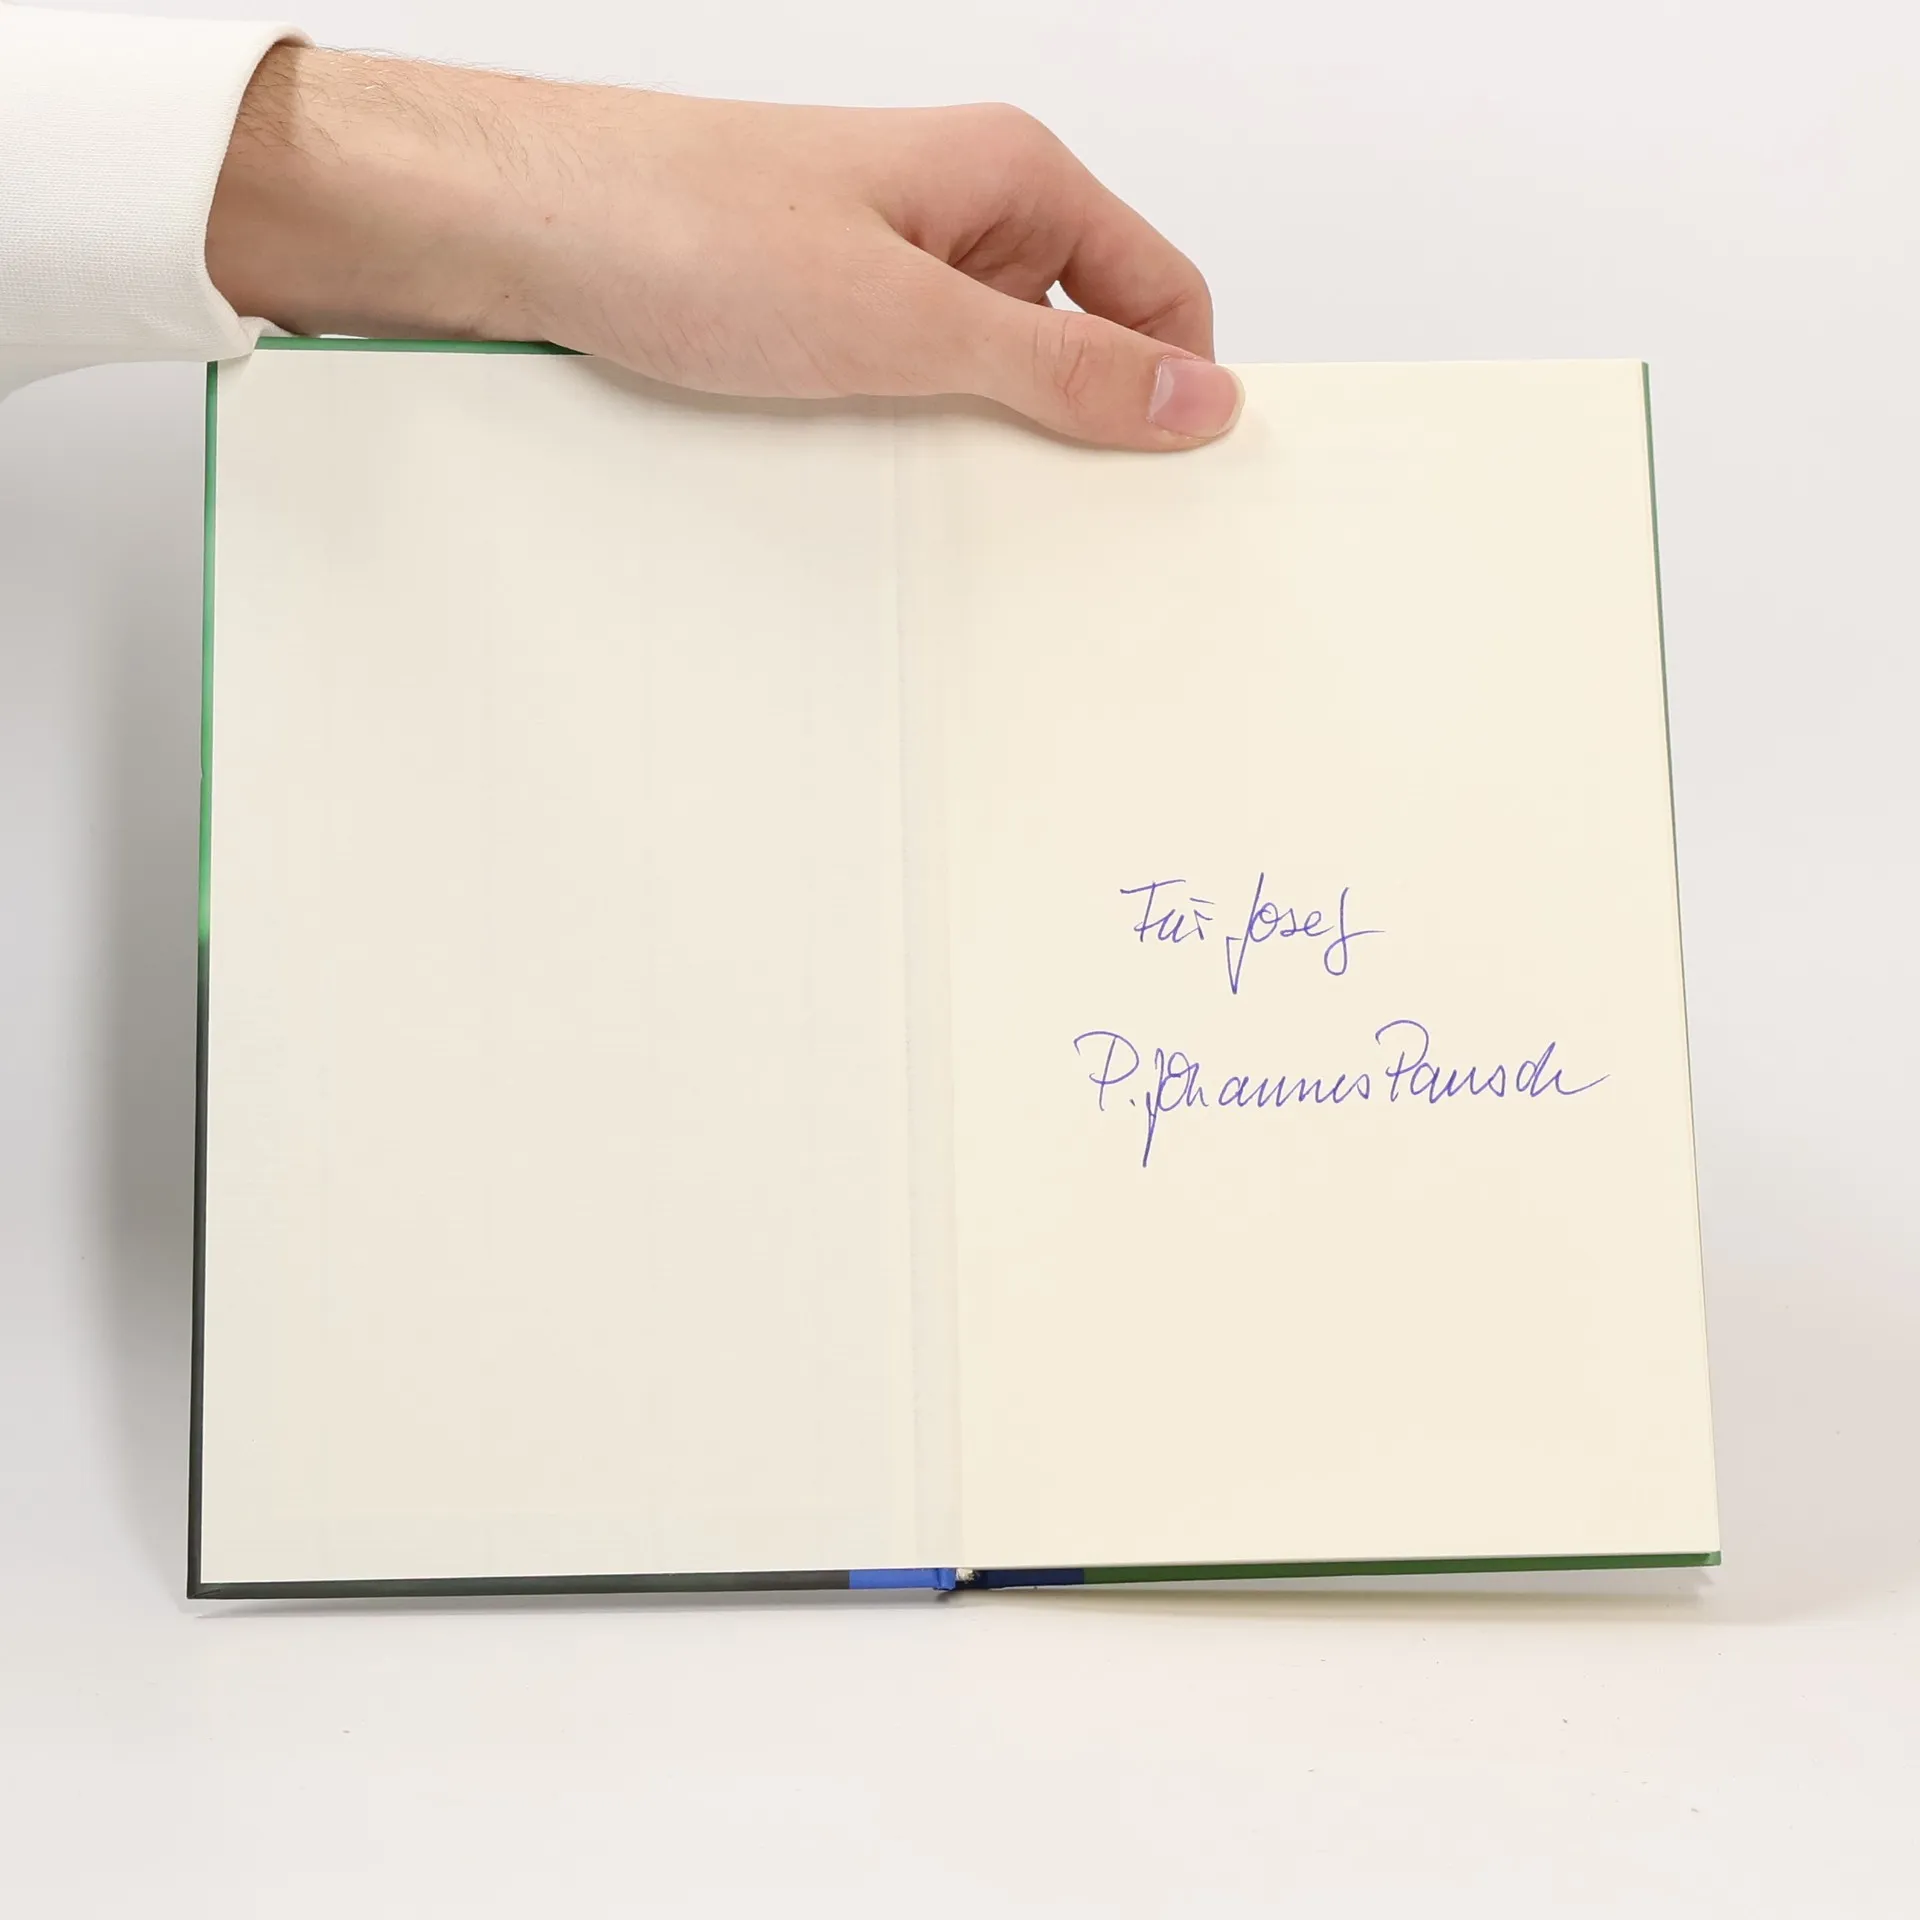 Für Josef
P. Johannes Pausch